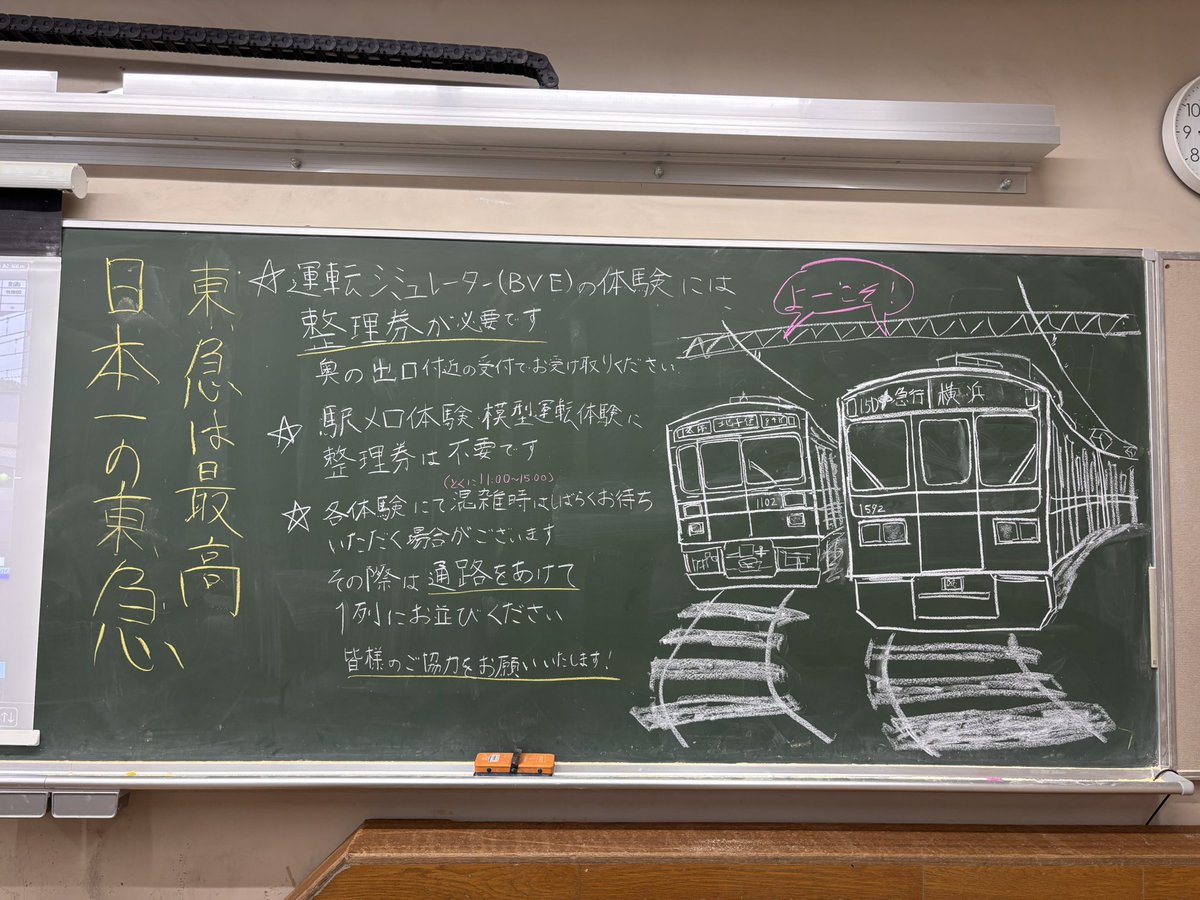 東急は最高
日本一の東急
☆運転シミュレーター(BVE)の体験には
整理券が必要です
奥の出口付近の受付でお受け取りください
☆駅メロ体験 模型運転体験に
整理券は不要です
(とくに11:00~15:00)
☆各体験にて混雑時はしばらくお待ち
いただく場合がございます
その際は通路をあけて
1列にお並びください
皆様のご協力をお願いいたします!
よーこそ!
急行 横浜
1592
北千住
1102
10
9
8